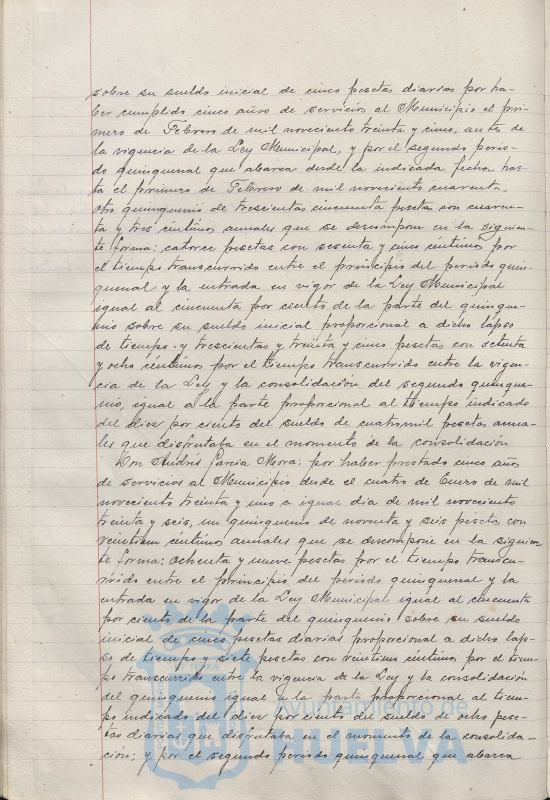 sobre su sueldo inicial de cinco pesetas diarias por ha-
ber cumplido cinco años de servicios al Municipio el pri-
mero de Febrero de mil noveciento treinta y cinco, antes de
la vigencia de la Ley Municipal, y por el segundo perio-
do quinquenal que abarca desde la indicada fecha has-
ta el primero de Febrero de mil noveciento cuarenta,
otro quinquenio de trescientas cincuenta peseta con cuaren-
ta y tres centimos anuales que se descompone en la siguien-
te forma: catorce pesetas con sesenta y cinco centimos por
el tiempo transcurrido entre el principio del periodo quin-
quenal y la entrada en vigor de la Ley Municipal
igual al cincuenta por ciento de la parte del quinque-
nio sobre su sueldo inicial proporcional a dicho lapso
de tiempo y trescientas y treinta y cinco pesetas con setenta
y ocho centimos por el tiempo transcurrido entre la vigen-
cia de la Ley y la consolidación del segundo quinque-
nio, igual a la parte proporcional al tiempo indicado
del diez por ciento del sueldo de cuatro mil pesetas anua-
les que disfrutaba en el momento de la consolidación
Don Andrés Garcia Mora: por haber prestado cinco años
de servicios al Municipio desde el cuatro de Enero de mil
noveciento treinta y uno a igual dia de mil noveciento
treinta y seis, un quinquenio de noventa y seis peseta con
veintiun centimos anuales que se descompone en la siguien-
te forma: Ochenta y nueve pesetas por el tiempo transcu-
rrido entre el principio del periodo quinquenal y la
entrada en vigor de la Ley Municipal igual al cincuenta
por ciento de la parte del quinquenio sobre su sueldo
inicial de cinco pesetas diarias proporcional a dicho lap-
so de tiempo y siete pesetas con veintiun centimos por el tiem-
po transcurrido entre la vigencia de la Ley y la consolidación
del quinquenio igual a la parte proporcional al tiem-
po indicado del diez por ciento del sueldo de ocho pese-
tas diarias que disfrutaba en el momento de la consolida-
ción; y por el segundo periodo quinquenal que abarca
Ayuntamiento de
HUELVA